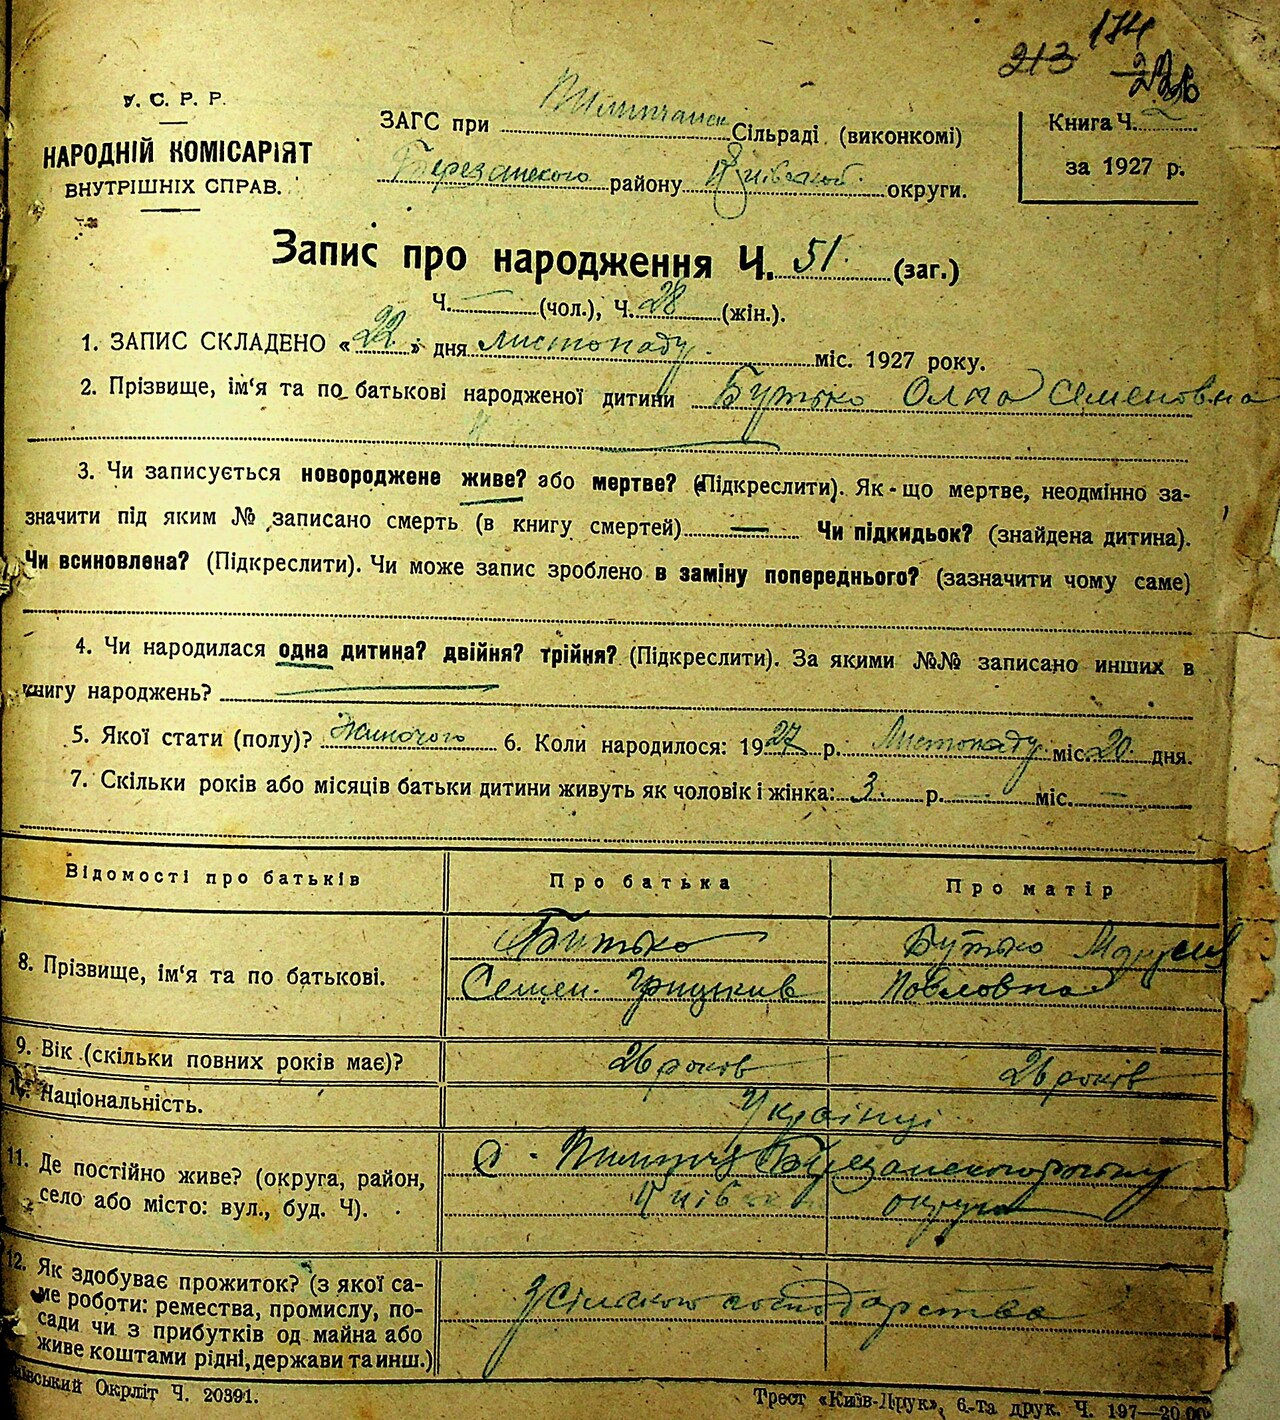 174
213
У. С. Р. Р.
НАРОДНІЙ КОМІСАРІЯТ
ВНУТРІШНІХ СПРАВ.
ЗАГС при Сільраді (виконкомі)
Березанского району Київської округи.
Книга Ч. 2
за 1927 р.
Запис про народження Ч. 51. (заг.)
Ч. — (чол.), Ч. 28 (жін.).
1. ЗАПИС СКЛАДЕНО «22» дня листопаду міс. 1927 року.
2. Прізвище, ім'я та по батькові народженої дитини Бутько Ольга Семеновна
3. Чи записується новороджене живе? або мертве? (Підкреслити). Як-що мертве, неодмінно за-
значити під яким № записано смерть (в книгу смертей) — Чи підкидьок? (знайдена дитина).
Чи всиновлена? (Підкреслити). Чи може запис зроблено в заміну попереднього? (зазначити чому саме)
4. Чи народилася одна дитина? двійня? трійня? (Підкреслити). За якими №№ записано инших в
книгу народжень?
5. Якої стати (полу)? Жиночого 6. Коли народилося: 1927 р. Листопаду міс. 20 дня.
7. Скільки років або місяців батьки дитини живуть як чоловік і жінка: 3 р. — міс. —
Відомості про батьків Про батька Про матір
8. Прізвище, ім'я та по батькові.
Бутько Бутько
Семен Грицьків Павловна
9. Вік (скільки повних років має)? 26 років 26 років
10. Національність. Українці
11. Де постійно живе? (округа, район,
село або місто: вул., буд. Ч).
с. Березанского району
Київськ округи
12. Як здобуває прожиток? (з якої са-
ме роботи: ремества, промислу, по-
сади чи з прибутків од майна або
живе коштами рідні, держави та инш.)
з сільского господарства
Київський Окрліт Ч. 20391.
Трест «Київ-Друк», 6-та друк. Ч. 197—20.00